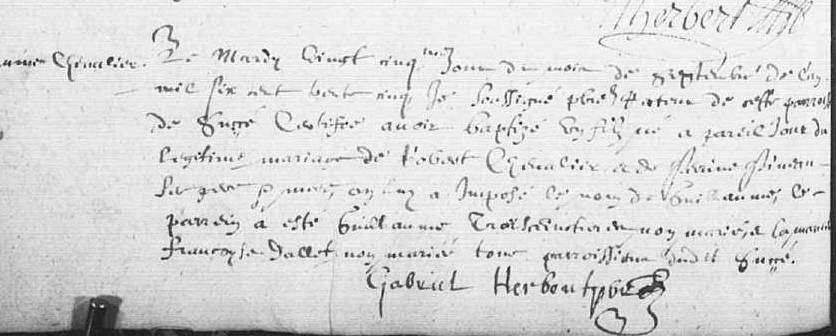 Herbert
Chevalier. Le Mardy vingt cinq me Jour du mois de septembre de l'an
mil six cent trente cinq Je soussigné pbre Recteur de cette parroisse
de Sucé Certifie avoir baptizé un filz né a pareil Jour du
legitime mariage de Robert Chevalier et de Perrine
ses pere & mere, on luy a Imposé le nom de Guillaume, le
parrein a esté Guillaume non marié, & la mareine
Françoyse Hallet non mariée tous parroissiens dudit Sucé.
Gabriel Herbert pbre